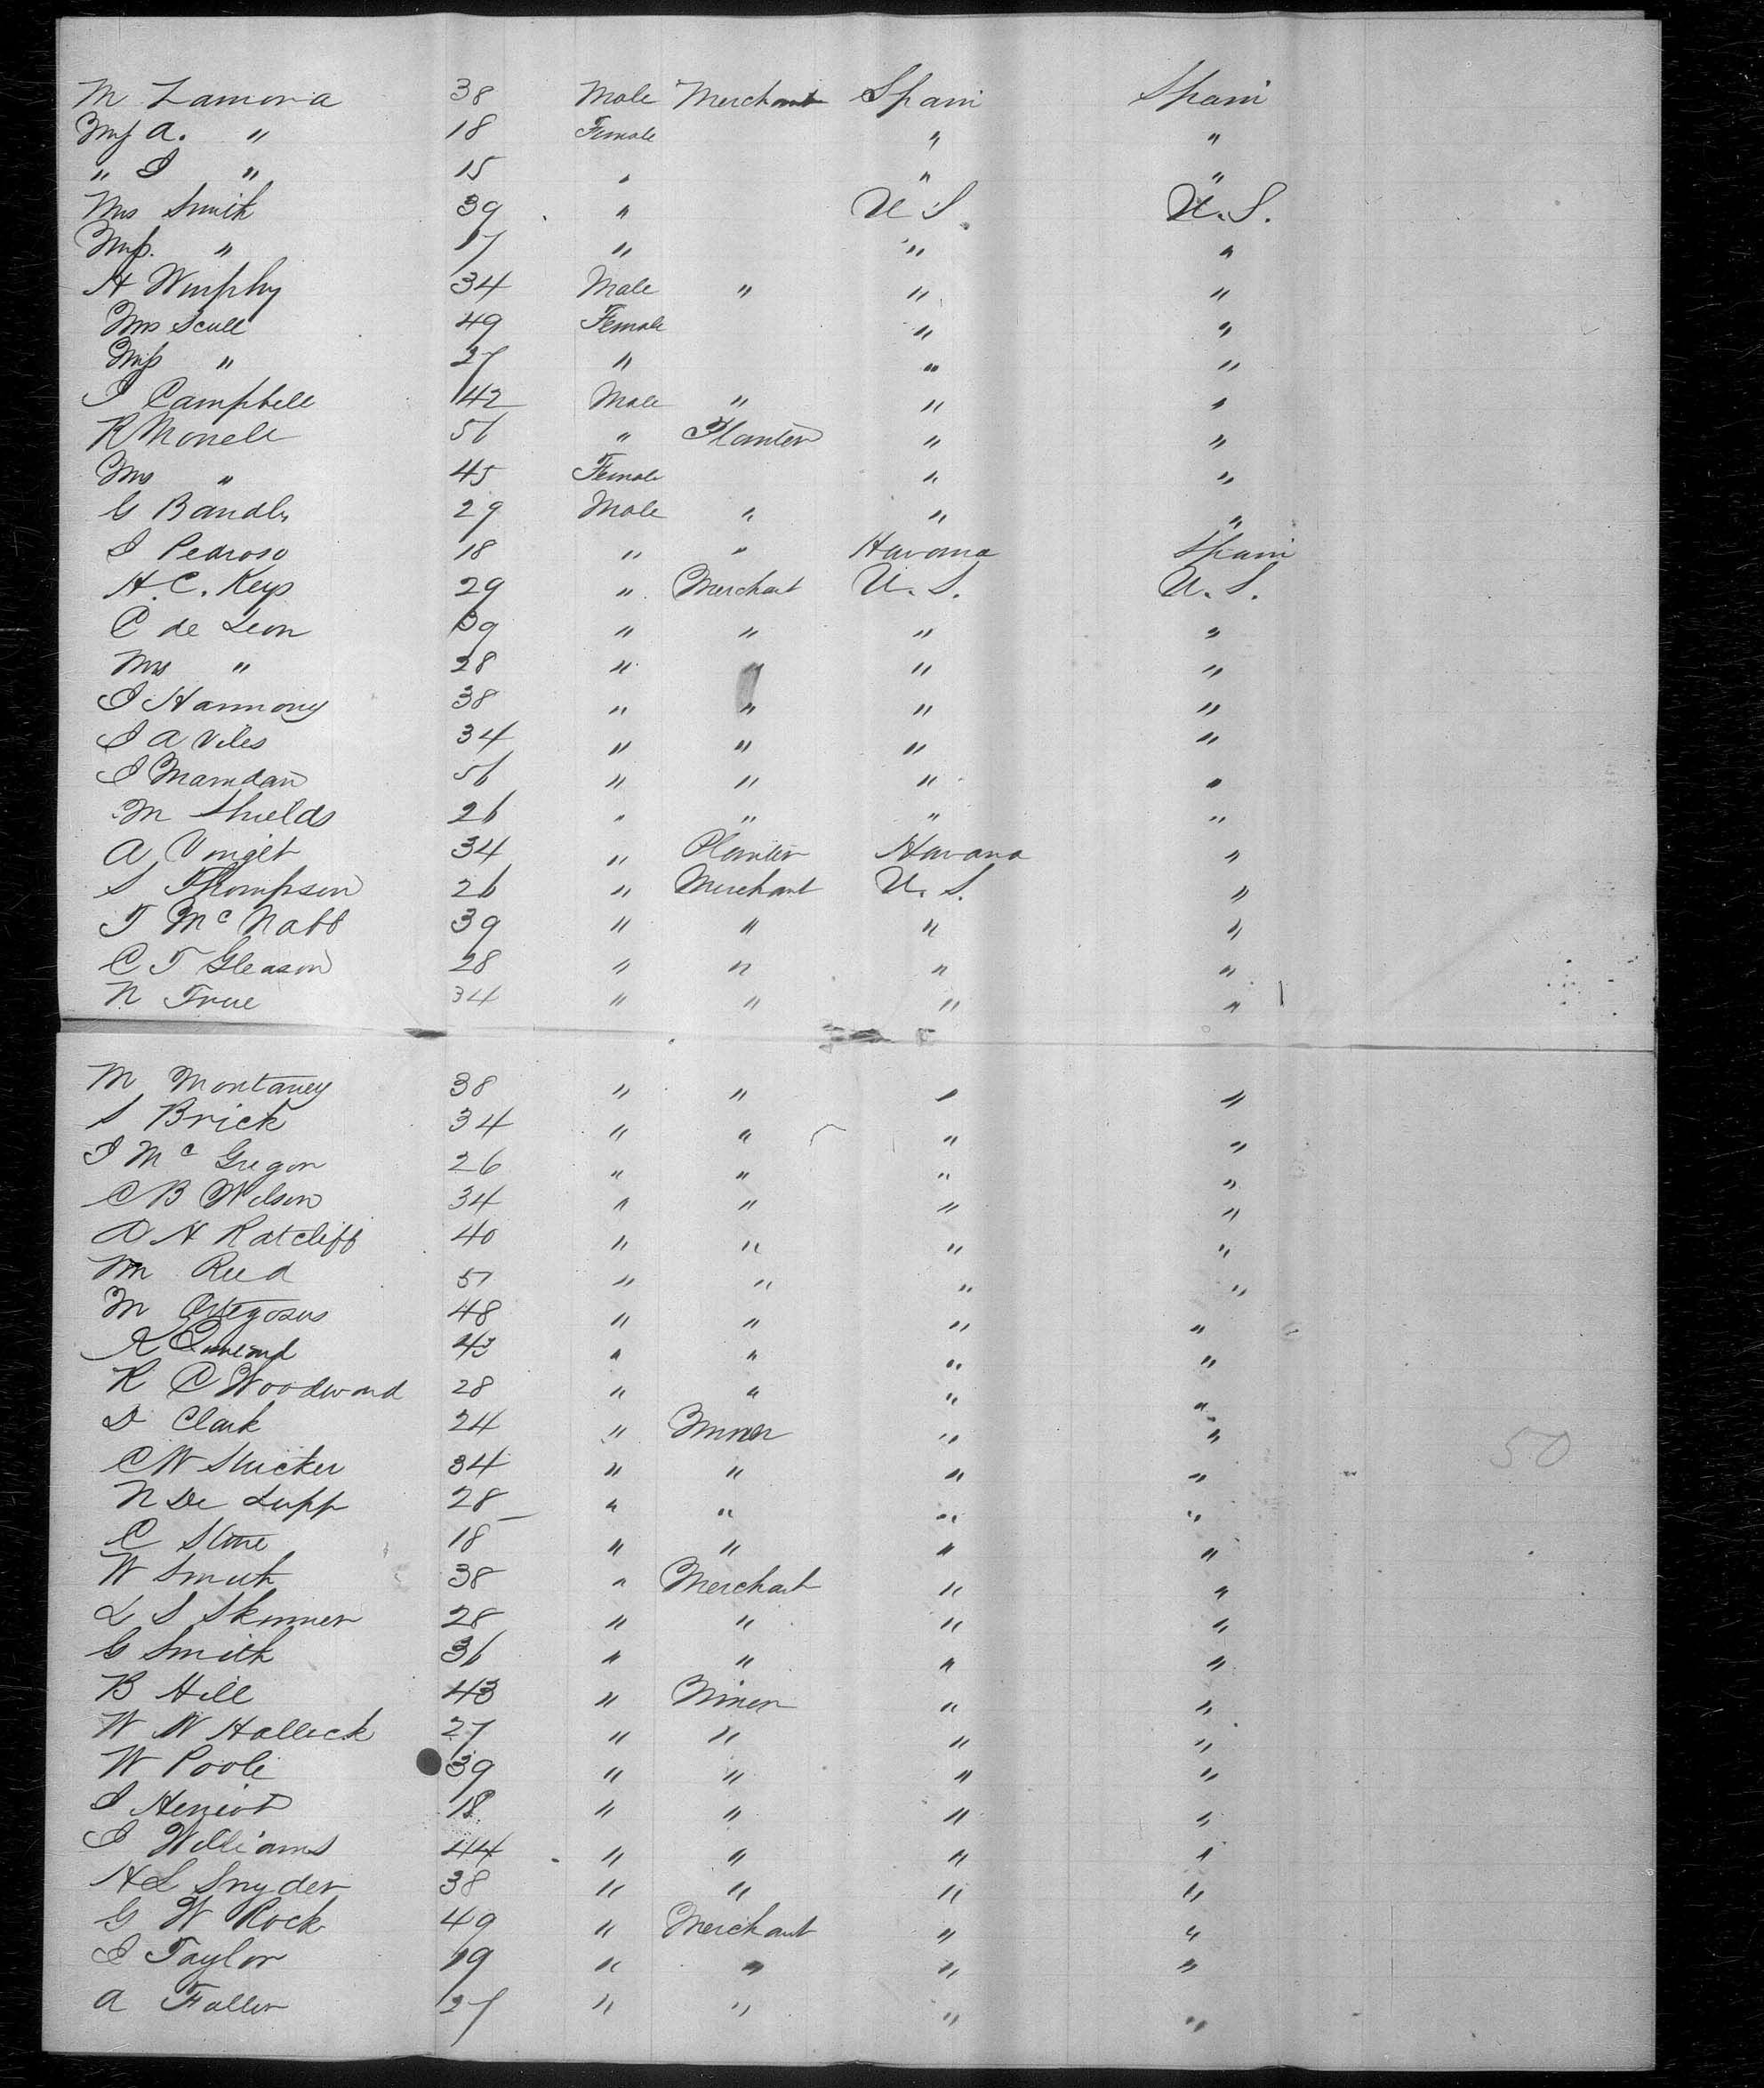 M Zamora 38 Male Merchant Spain Spain
Miss A. " 18 Female " "
" I " 15 " " "
Mrs Smith 39 " U S. U. S.
Miss. " 17 " " "
A Murphy 34 Male " " "
Mrs Scull 49 Female " "
Miss " 27 " " "
I Campbell 42 Male " " "
R Monell 56 " Planter " "
Mrs " 45 Female " "
G Bandly 29 Male " " "
I Pedroso 18 " " Havana Spain
H. C. Keys 29 " Merchant U. S. U. S.
C de Leon 39 " " " "
Mrs " 28 " " " "
I Harmony 38 " " " "
I A Viles 34 " " " "
I 56 " " " "
M Shields 26 " " " "
A 34 " Planter Havana "
S Thompson 26 " Merchant U. S. "
T Mc Nabb 39 " " " "
C T Gleason 28 " " " "
N True 34 " " " "
M Montaney 38 " " " "
S Brick 34 " " " "
I Mc Gregor 26 " " " "
C B Wilson 34 " " " "
O H Ratcliff 40 " " " "
M Reed 57 " " " "
M 48 " " " "
A 43 " " " "
R C Woodward 28 " " " "
D Clark 24 " Miner " "
C W Stricker 34 " " " "
N De Lupp 28 " " " "
C Stone 18 " " " "
W Smith 38 " Merchant " "
L S Skinner 28 " " " "
G Smith 36 " " " "
B Hill 43 " Miner " "
W W Halleck 27 " " " "
W Poole 39 " " " "
I Heriot 18 " " " "
I Williams 44 " " " "
H L Snyder 38 " " " "
G W Rock 49 " Merchant " "
I Taylor 19 " " " "
A Faller 27 " " " "
50